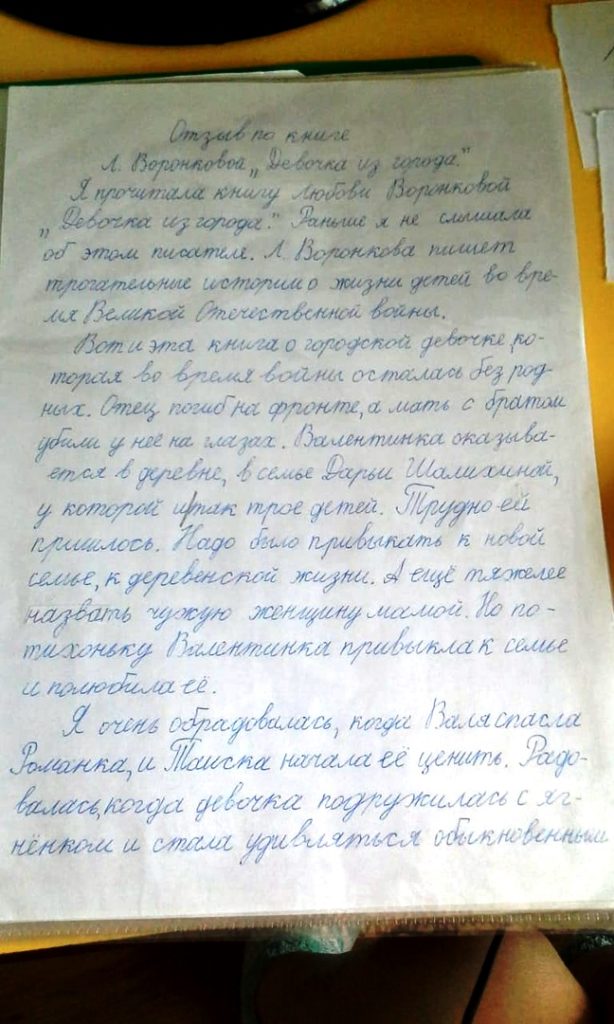 Отзыв по книге
Л. Воронковоа „Девочка из города."
Я прочитала книгу Любови Воронковой
„Девочка из города." Раньше я не слышала
об этом писателе. Л. Воронкова пишет
трогательные истории о жизни детей во вре-
мя Великой Отечественной войны.
Вот и эта книга о городской девочке, ко-
торая во время войны осталась без род-
ных. Отец погиб на фронте, а мать с братом
убили у неё на глазах. Валентинка оказыва-
ется в деревне, в семье Дарьи Шалихиной,
у которой и так трое детей. Трудно ей
пришлось. Надо было привыкать к новой
семье, к деревенской жизни. А ещё тяжелее
назвать чужую женщину мамой. Но по-
тихоньку Валентинка привыкла к семье
и полюбила её.
Я очень обрадовалась, когда Валя спасла
Романка, и Таиска начала её ценить. Радо-
валась, когда девочка подружилась с яг-
нёнком и стала удивляться обыкновенным